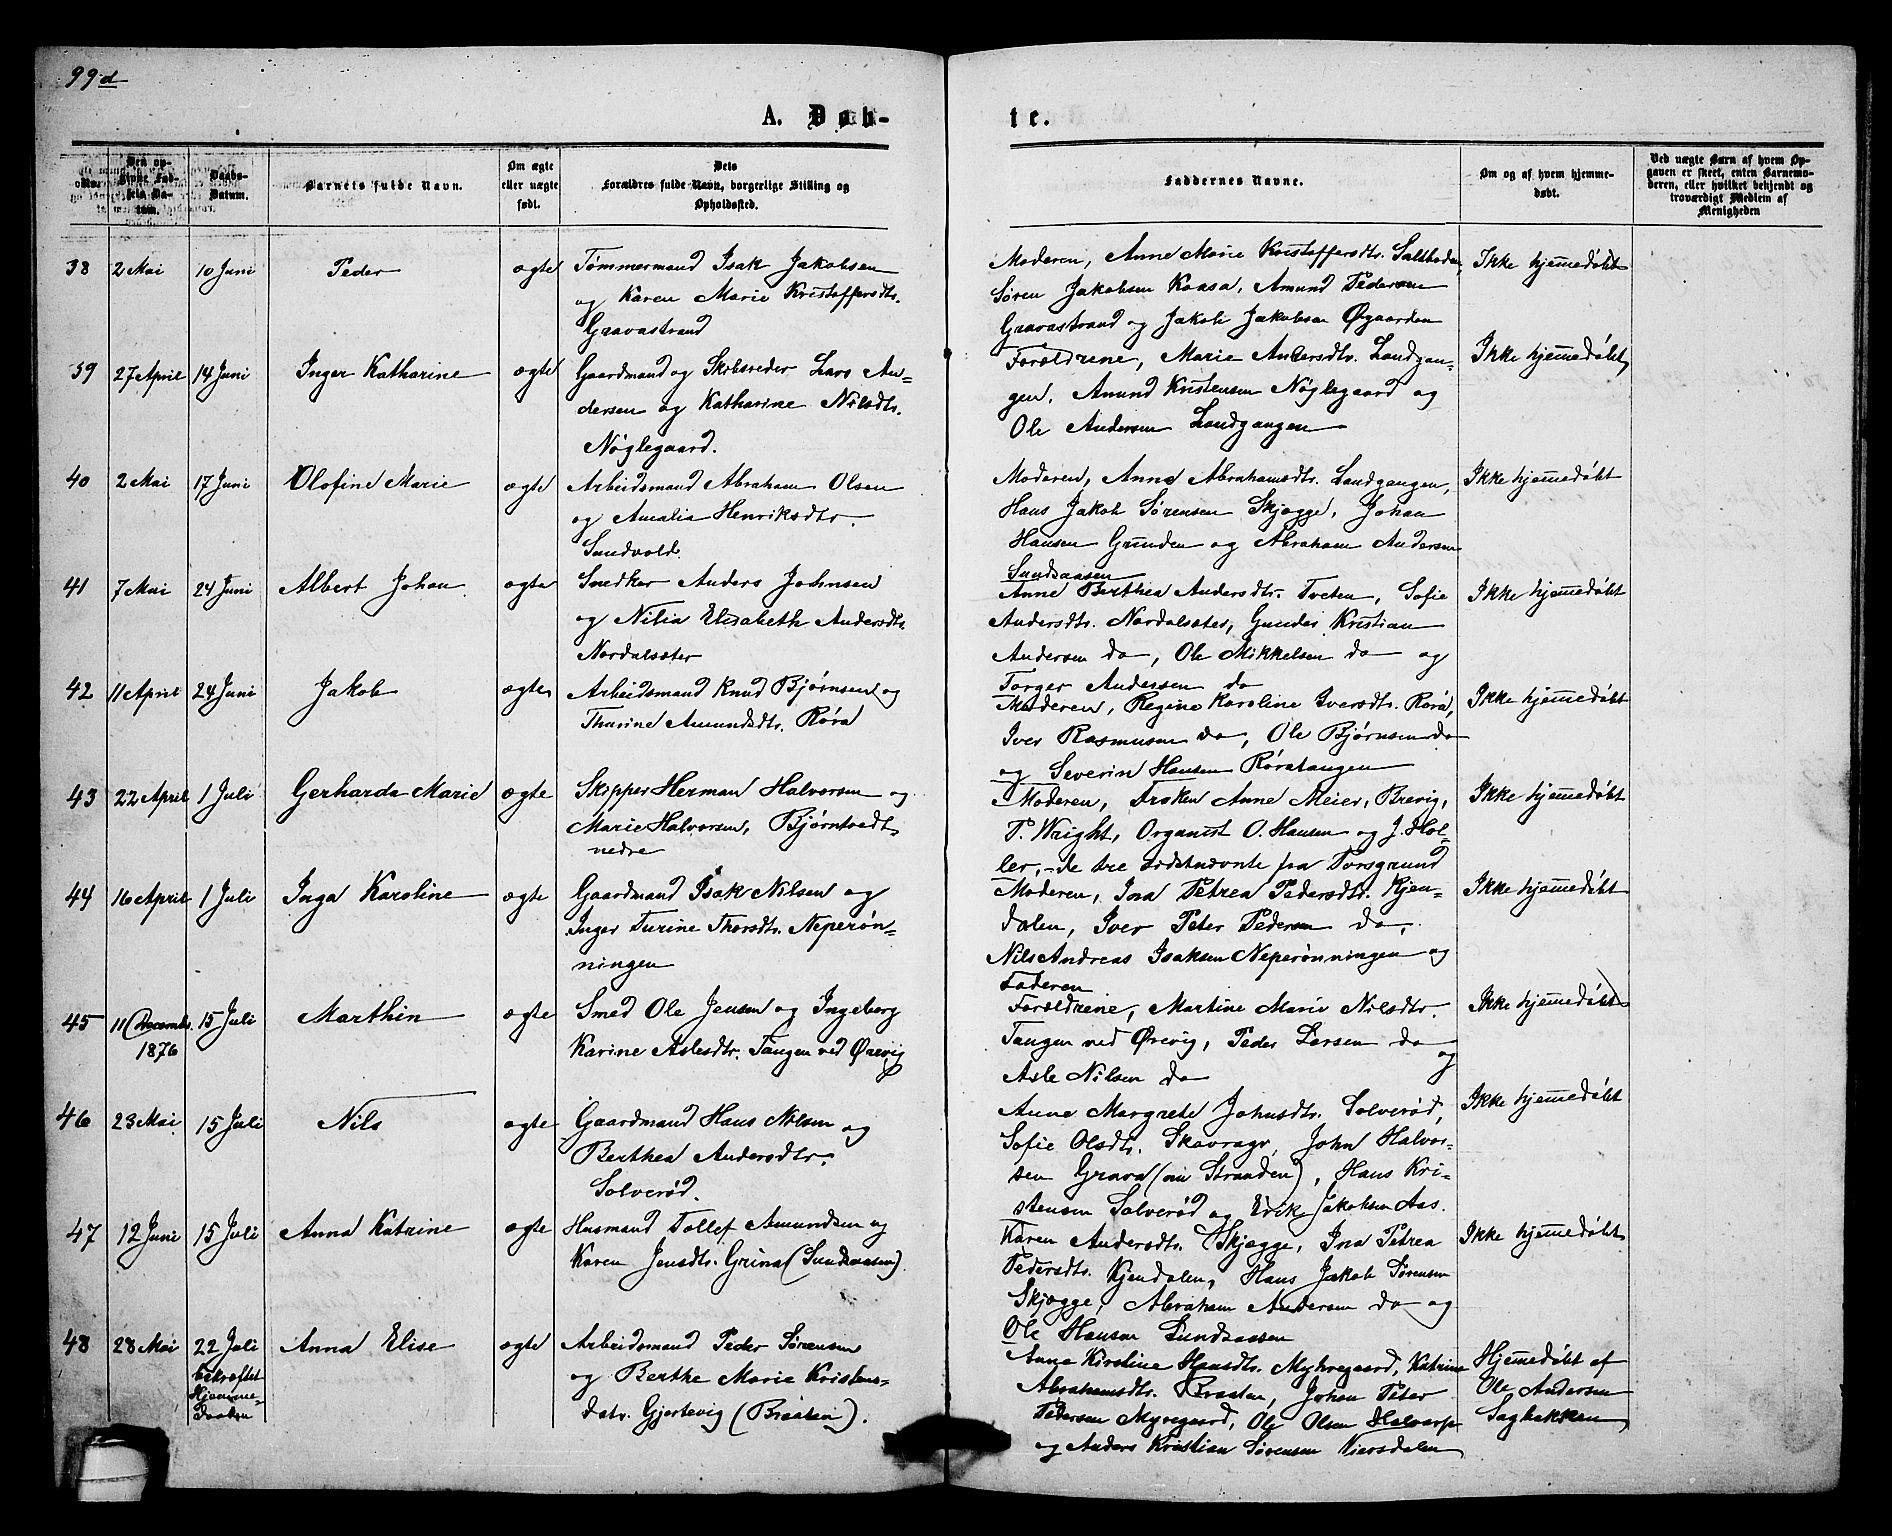 99d
A. Døb-
te.
No.
Den op-
givne Fød-
sels Da-
tum.
Daabs-
Datum.
Barnets fulde Navn.
Om ægte
eller uægte
født.
Dets
Forældres fulde Navn, borgerlige Stilling og
Opholdssted.
Faddernes Navne.
Om og af hvem hjemme-
døbt.
Ved uægte Barn af hvem Op-
gaven er skeet, enten Barnemo-
deren, eller hvilket bekjendt og
troværdigt Medlem af
Menigheden
38 2 Mai 10 Juni Peder ægte
Tømmermand Isak Jakobsen
og Karen Marie Kristoffersdtr.
Gravastrand
Moderen, Anne Marie Kristoffersdtr. Saltboden,
Søren Jakobsen Kaasa, Amund Pedersen
Gravastrand og Jakob Jakobsen Øgaarden
Ikke hjemmedøbt
39 27 April 14 Juni Inger Katharine ægte
Gaardmand og Skibsreder Lars An-
dersen og Katharine Nilsdtr.
Nøglegaard.
Forældrene, Marie Andersdtr. Landgan-
gen, Amund Kristensen Nøglegaard og
Ole Andersen Landgangen
Ikke hjemmedøbt
40 2 Mai 17 Juni Olofine Marie ægte
Arbeidsmand Abraham Olsen
og Amalia Henriksdtr.
Sundvold.
Moderen, Anne Abrahamsdtr. Landgangen,
Hans Jakob Sørensen Skjægge, Johan
Hansen Grinden og Abraham Andersen
Sundsaasen
Ikke hjemmedøbt
41 7 Mai 24 Juni Albert Johan ægte
Snedker Anders Johnsen
og Nilia Elisabeth Andersdtr.
Nordalsæter
Anne Berthea Andersdtr. Tveten, Sofie
Andersdtr. Nordalsæter, Gunder Kristian
Andersen do, Ole Mikkelsen do og
Torger Andersen do
Ikke hjemmedøbt
42 11 April 24 Juni Jakob ægte
Arbeidsmand Knud Bjørnsen og
Thurine Amundsdtr. Røra
Moderen, Regine Karoline Iversdtr. Røra,
Iver Rasmusen do, Ole Bjørnsen do
og Severin Hansen Røratangen
Ikke hjemmedøbt
43 22 April 1 Juli Gerharda Marie ægte
Skipper Herman Halvorsen og
Marie Halvorsen, Bjørntvedt
nedre
Moderen, Frøken Anne Meier, Brevig,
P. Wright, Organist O. Hansen og J. Høl-
ler, - de tre sidstnævnte fra Porsgrund
Ikke hjemmedøbt
44 16 April 1 Juli Inga Karoline ægte
Gaardmand Isak Nilsen og
Inger Turine Thorsdtr. Neperøn-
ningen
Moderen, Ina Petrea Pedersdtr. Kjen-
dalen, Iver Peter Pedersen do,
Nils Andreas Isaksen Neperønningen og
Faderen
Ikke hjemmedøbt
45 11 Decemb. 15 Juli Marthin ægte
1876
Smed Ole Jensen og Ingeborg
Karine Aslesdtr. Tangen ved Ørevig
Forældrene, Martine Marie Nilsdtr.
Tangen ved Ørevig, Peder Larsen do
og
Asle Nilsen do
Ikke hjemmedøbt
46 23 Mai 15 Juli Nils ægte
Gaardmand Hans Nilsen og
Berthea Andersdtr.
Solverød.
Anne Margrete Johnsdtr. Solverød,
Sofie Olsdtr. Skavrager, John Halvor-
sen Grava (om Stranden), Hans Kri-
stensen Solverød og Erik Jakobsen Aas.
Ikke hjemmedøbt
47 12 Juni 15 Juli Anna Katrine ægte
Husmand Tollef Amundsen og
Karen Jensdtr. Grina (Sundsaasen).
Karen Andersdtr. Skjægge, Ina Petrea
Pedersdtr. Kjendalen, Hans Jakob Sørensen
Skjægge, Abraham Andersen do og
Ole Hansen Sundsaasen
Ikke hjemmedøbt
48 28 Mai 22 Juli Anna Elise ægte
bekræftet
Hjemme-
daaben
Arbeidsmand Peder Sørensen
og Berthe Marie Kristens-
datr. Gjertevig (Braaten).
Anne Kirstine Hansdtr. Myhregaard, Katrine
Abrahamsdtr. Braaten, Johan Peter
Pedersen Myregaard, Ole Olsen Halvarp
og Anders Kristian Sørensen Viersdalen
Hjemmedøbt af
Ole Andersen
Sagbakken